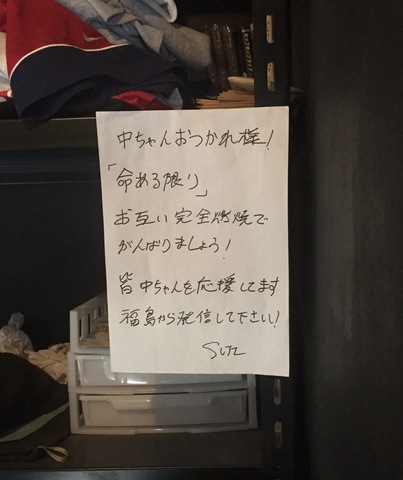 中ちゃんおつかれ様!
「命ある限り」
お互い完全燃焼で
がんばりましょう!
皆中ちゃんを応援してます
福島から発信して下さい!